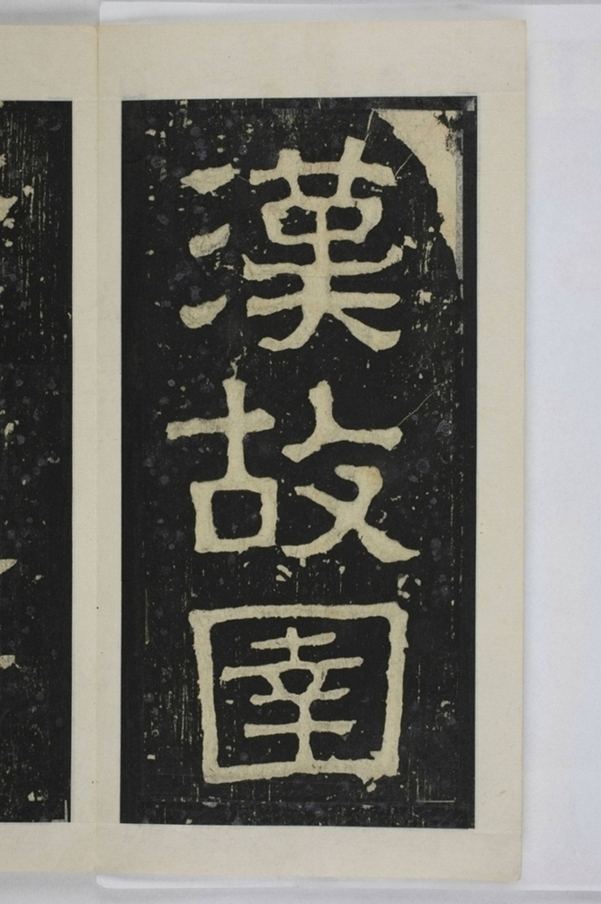 漢故圉